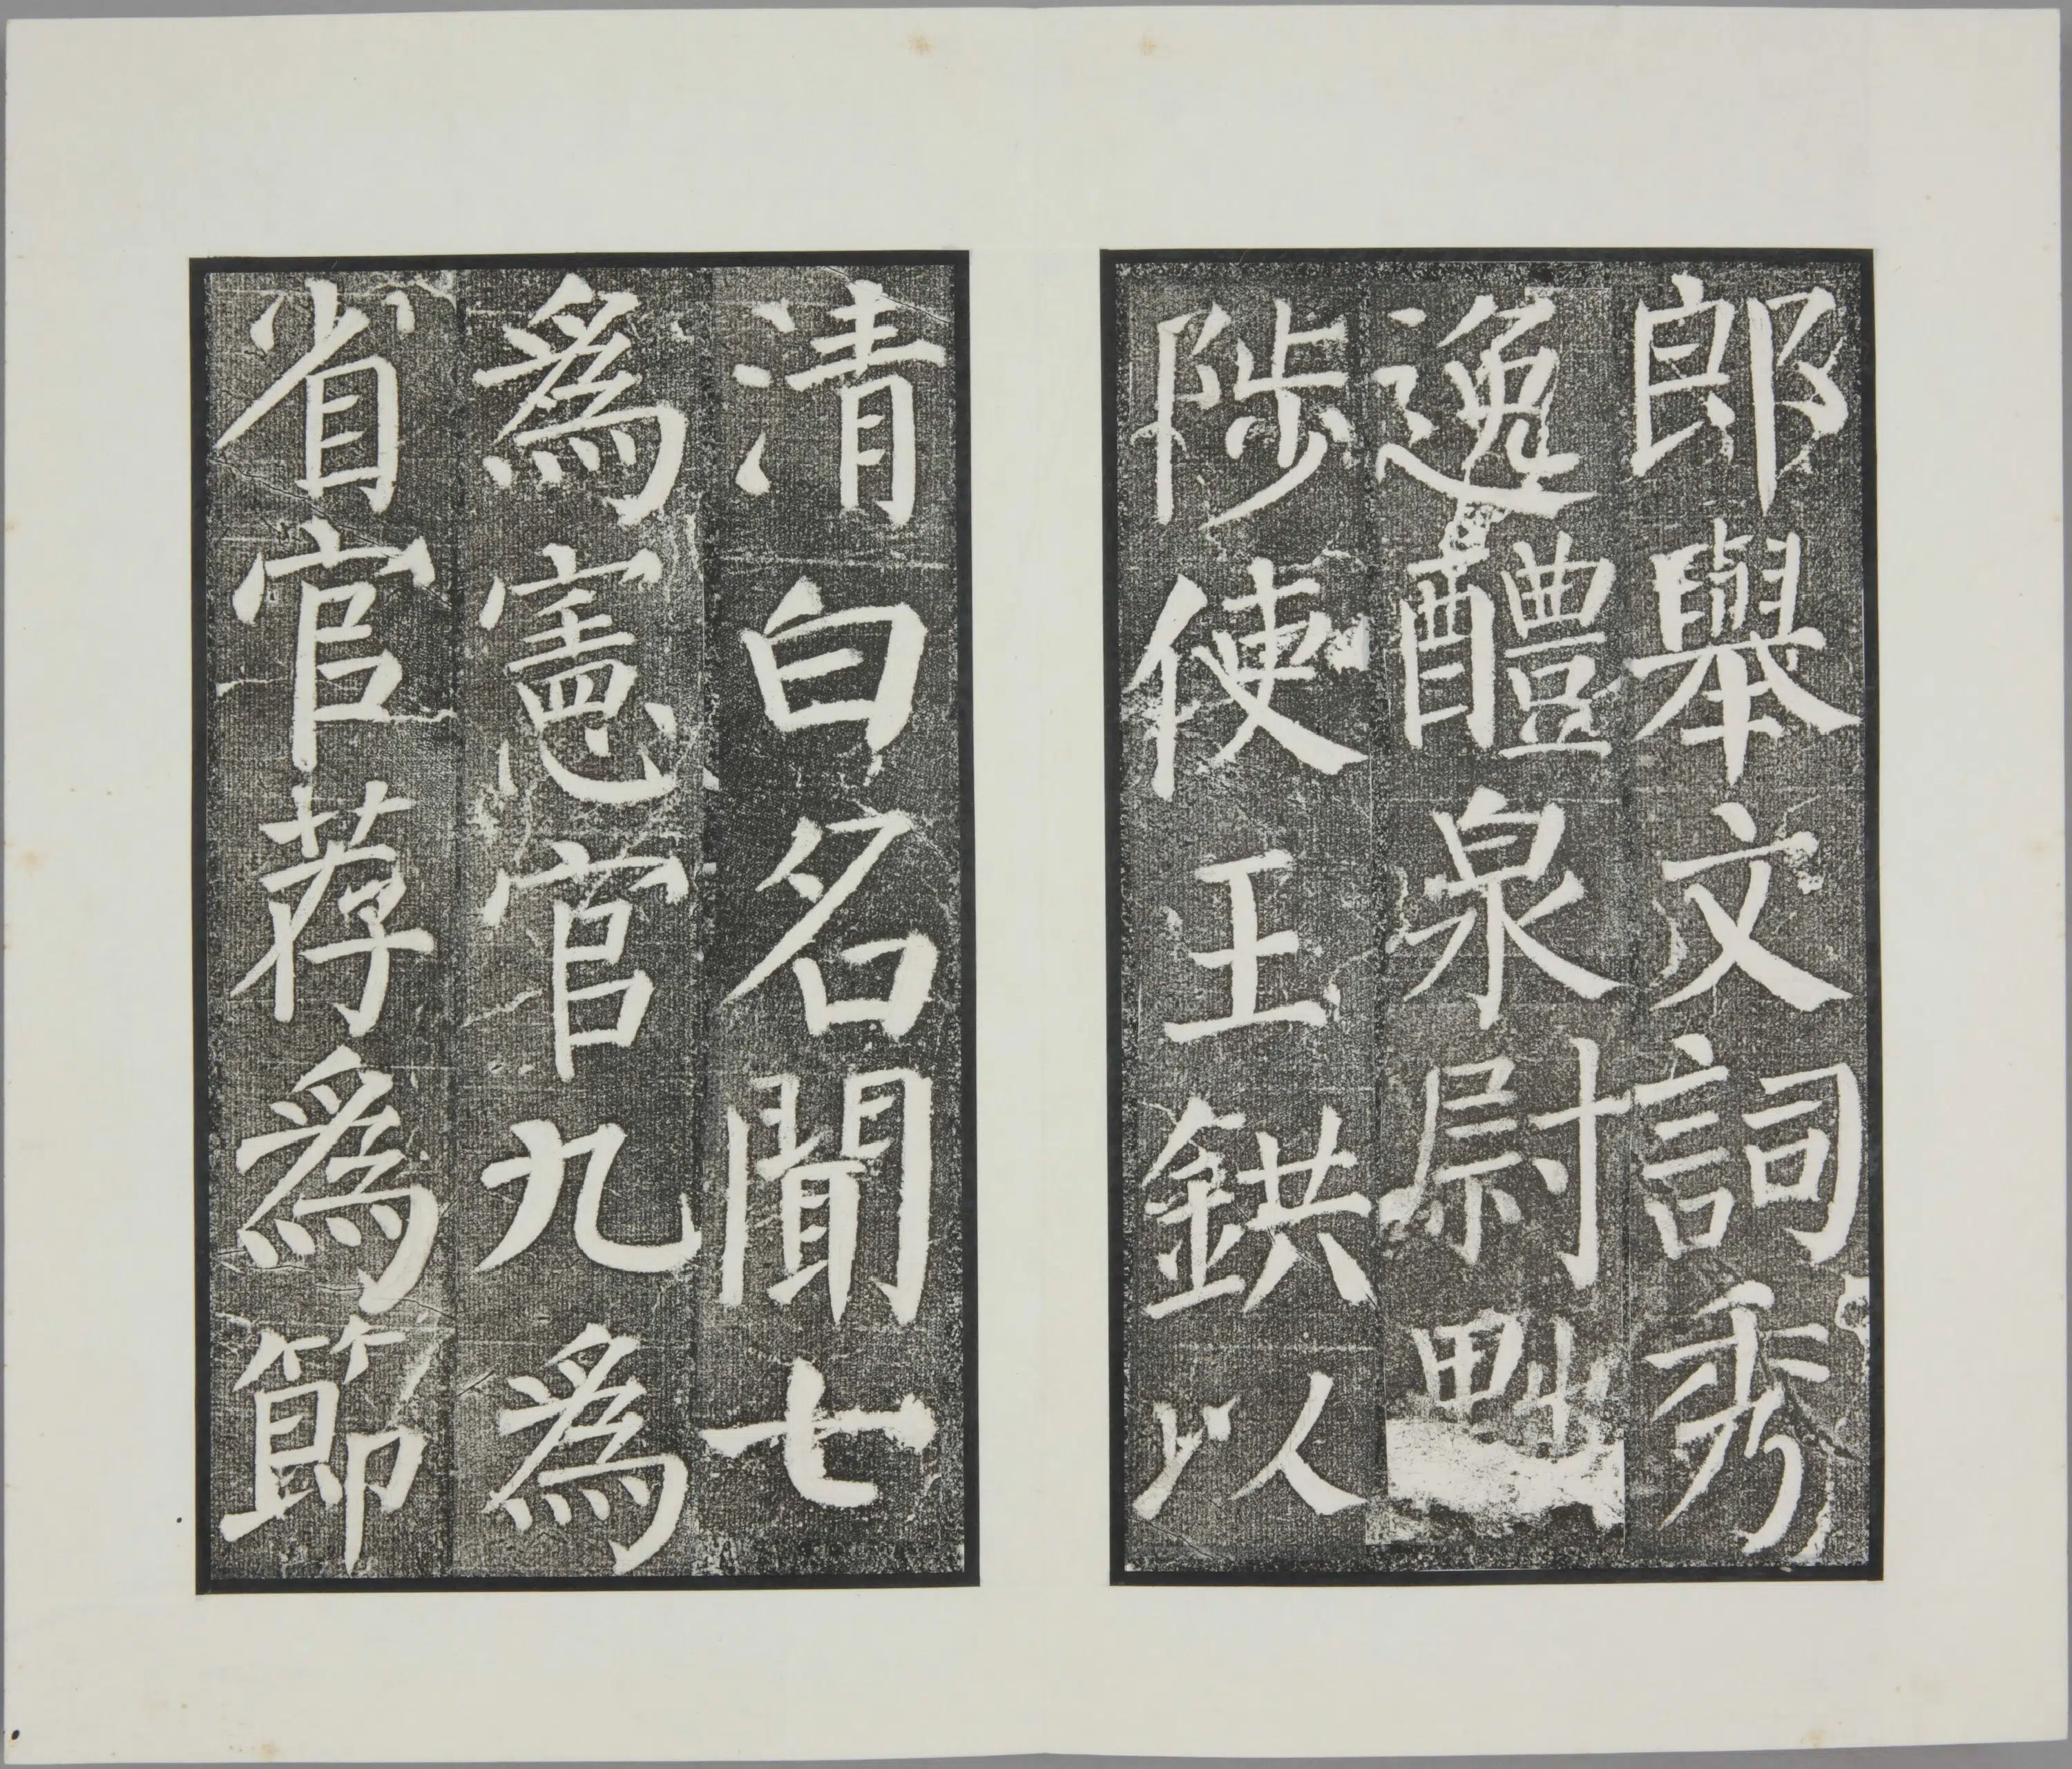 郎舉文詞秀
逸醴泉尉黜
陟使王鉷以
清白名聞七
爲憲官九爲
省官荐爲節